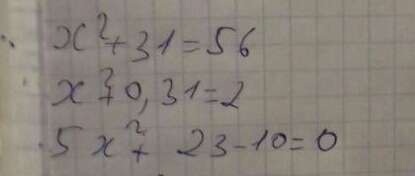 x²+31=56
x²+0,31=2
5x²+ 23-10=0